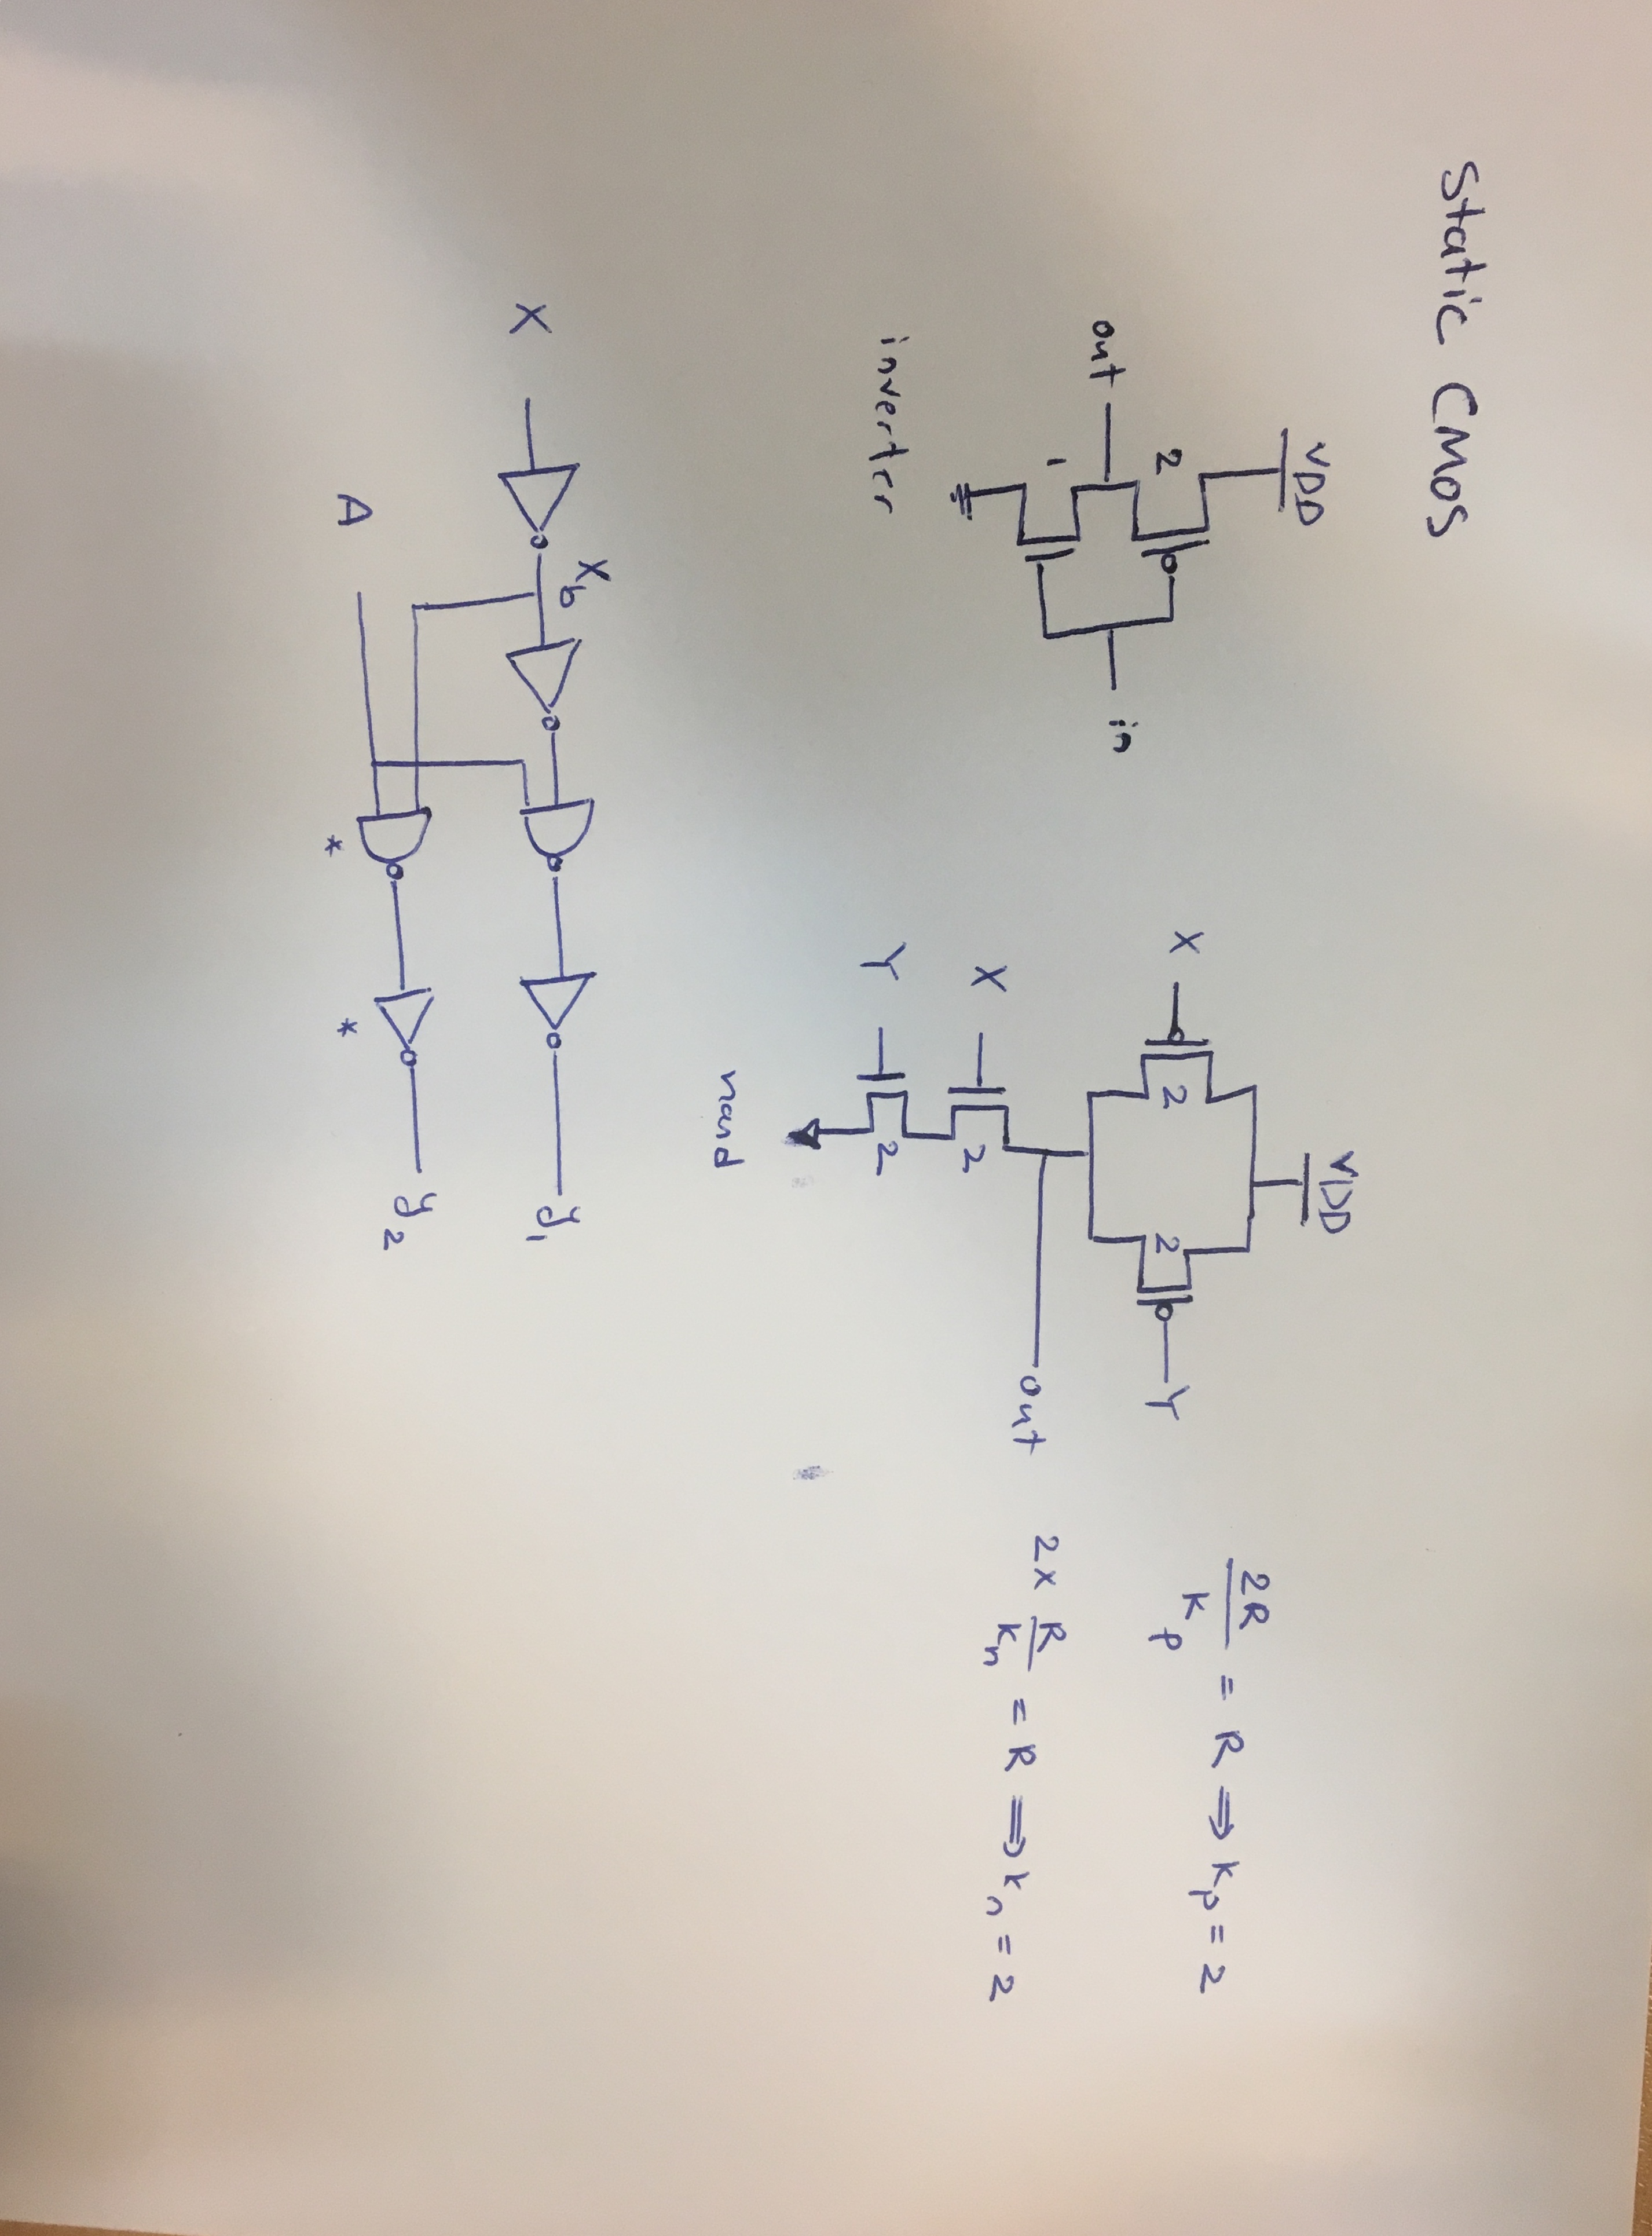 Static CMOS
VDD
2
out
1
in
inverter
VDD
X
2
2
Y
out
X
2
Y
2
nand
2R/Kp = R ⇒ Kp = 2
2x R/Kn = R ⇒ Kn = 2
X
Xb
A
*
*
y1
y2